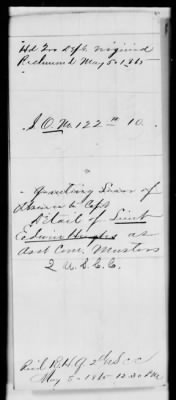 Hd Qrs Dept Virginia
Richmond May 5 1865
S.O. No. 122 10.
Granting Leave of
absence to Capt
Detail of Lieut
Edwin Hughes as
Asst Com. Musters
2 U.S.C.C.
Recd R.H.Q 2d U S C C
May 5 - 1865 12.30 P.M.